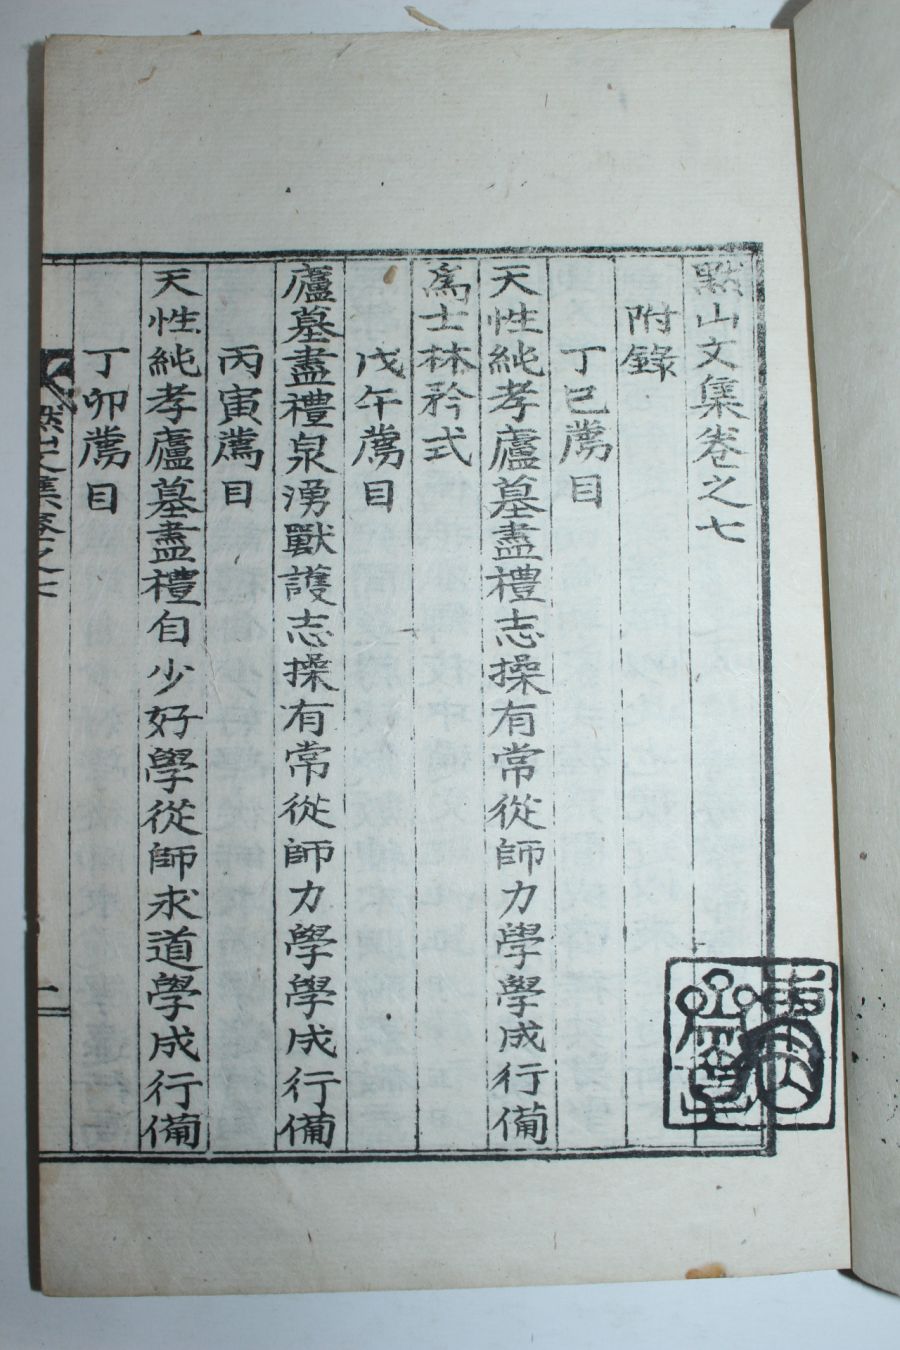 黙山文集卷之七
附錄
丁巳薦目
天性純孝廬墓盡禮志操有常從師力學學成行備
爲士林矜式
戊午薦目
廬墓盡禮泉湧獸護志操有常從師力學學成行備
丙寅薦目
天性純孝廬墓盡禮自少好學從師求道學成行備
丁卯薦目
黙山文集卷之七
一